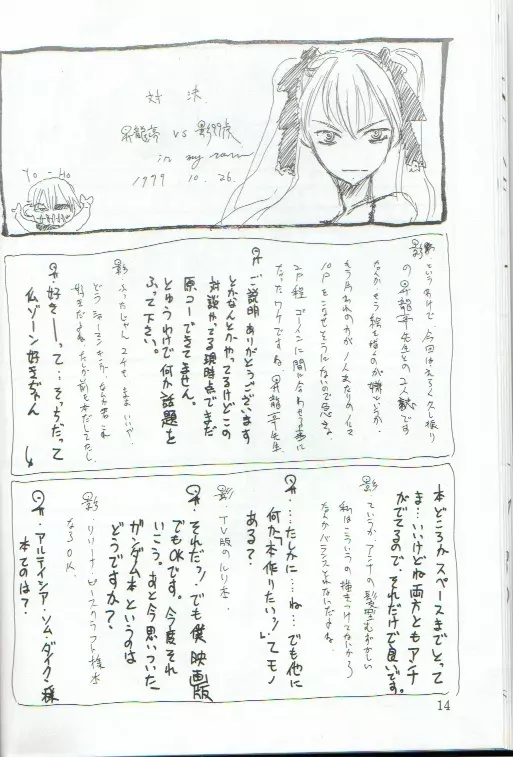 対決
昇龍亭 vs 影
in my room
1999 10.26.
Yo-Ho
影 というわけで 今回はえらく久し振り
の昇龍亭先生との2人談です
なんか もう絵を描くのが嫌というか
もう月われの力が ノ人
10Pをこなせそうにないので急きょ
2P程 ゴーインに間に合わせる事に
なったワケですね 昇龍亭先生
昇 ご説明ありがとうございます
とかなんとかやってるけどこの
対談やってる現時点でまだ
原コーできてません。
とゆうわけで何か話題を
ふって下さい。
影 ふったじゃん コスモ まぁいいや、
どうシャーマンキング、なら君これ
好きだよね たしか前も本だしてたし
昇 好きーって…そっちだって
仏ゾーン好きぢゃん
本どころかスペースまでとって
ま…いいけどね両方ともアンナ
がでてるので、それだけで良いです。
影 ていうか アンナの髪型むずかしい
私はこういうの描きつけてないから
なんかバランスとれないだよね、
昇 …たしかに…ね…でも他に
何か「本作りたいッ!」てモノ
ある?
影・TV版のルリ本.
昇・それだッ! でも僕、映画版
でもOKです。今度それ
いこう。あと今思いついた
ガンダム本というのは
どうですか?
影・リリーナ・ピースクラフト様本
ならOK.
昇・アルテイシア・ソム ダイクン様
本てのは?
14